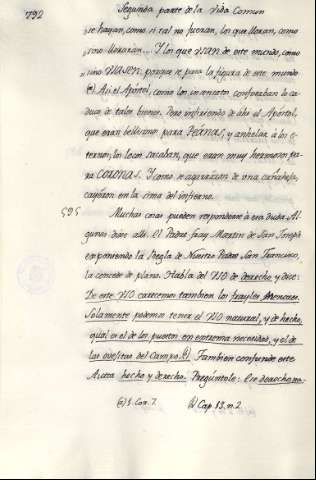 792
Segunda parte de la Vida Comun
se hayan, como si tal no fueran, los que lloran, como
sino lloraran... Y los que VSAN de este mundo, como
sino VSASEN; porque se pasa la figura de este mundo
(a). Asi el Apóstol, como los insensatos confesaban lo ca-
duco de tales bienes. Pero infiriendo de ahi el Apóstol,
que eran bellisimos para PEANAS, y anhelar à los e-
ternos; los locos sacaban, que eran muy hermosos pa-
ra CORONAS. Y como se agarraban de una cañaheja,
cayeron en la sima del infierno.
595 Muchas cosas pueden responderse à esa duda. Al-
gunos dicen alli. El Padre fray Martin de San Joseph
exponiendo la Regla de Nuestro Padre San Francisco,
la concede de plano. Habla del VSO de derecho, y dice:
De este VSO carecemos tambien los frayles Menores.
Solamente podemos tener el VSO natural, y de hecho,
qual es el de los puestos en extrema necesidad, y el de
las ovejitas del Campo (b). Tambien confunde este
Autor hecho y derecho. Preguntole: Ese derecho no-
(a) I. Cor. 7. (b) Cap. 13. n. 2.